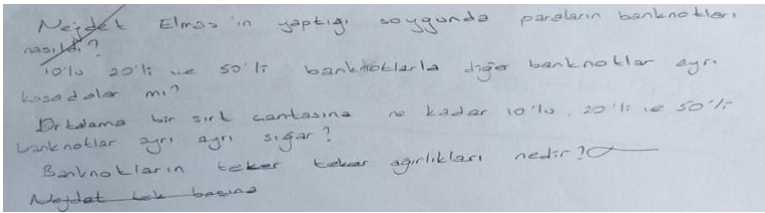 Nejdet Elmas'ın yaptığı soygunda paraların banknotları
nasıldı?
10'lu 20'li ve 50'li banknotlarla diğer banknotlar ayrı
kasadalar mı?
Ortalama bir sırt cantasına ne kadar 10'lu, 20'li ve 50'li
banknotlar ayrı ayrı sığar?
Banknotların teker teker ağırlıkları nedir?
Nejdet tek başına